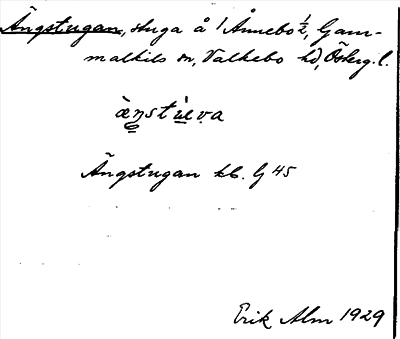 Ängstugan, stuga å 1 Ånnebo ½, Gam-
malkils sn, Valkebo hd, Österg. l.
ä̀ŋstùɐva
Ängstugan kb. G 45
Erik Alm 1929